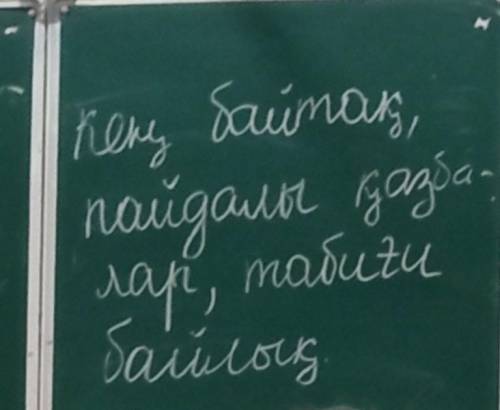 кең байтақ,
пайдалы қазба-
лар, табиғи
байлық